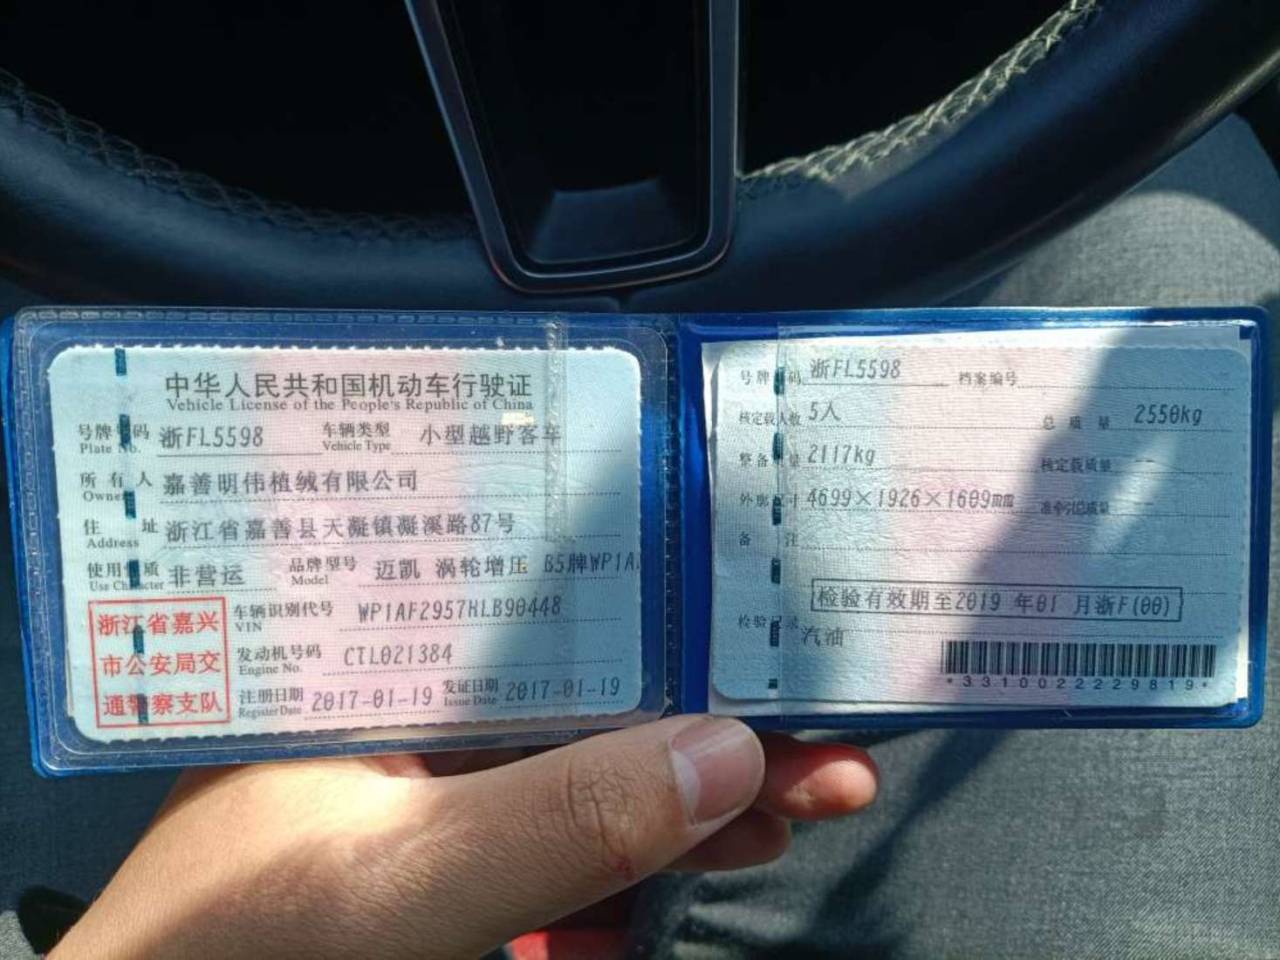 中华人民共和国机动车行驶证
Vehicle License of the People's Republic of China
号牌号码 浙FL5598 车辆类型 小型越野客车
Plate No. Vehicle Type
所有人 嘉善明伟植绒有限公司
Owner
住址 浙江省嘉善县天凝镇凝溪路87号
Address
使用性质 非营运 品牌型号 迈凯 涡轮增压 B5牌WP1A
Use Character Model
浙江省嘉兴
市公安局交
通警察支队
车辆识别代号 WP1AF2957HLB90448
VIN
发动机号码 CTL021384
Engine No.
注册日期 2017-01-19 发证日期 2017-01-19
Register Date Issue Date
号牌号码 浙FL5598 档案编号
核定载人数 5人 总质量 2550kg
整备质量 2117kg 核定载质量 --
外廓尺寸 4699×1926×1609mm 准牵引总质量 --
备注
检验有效期至2019 年01 月浙F(00)
检验记录
汽油
*3310022229819*